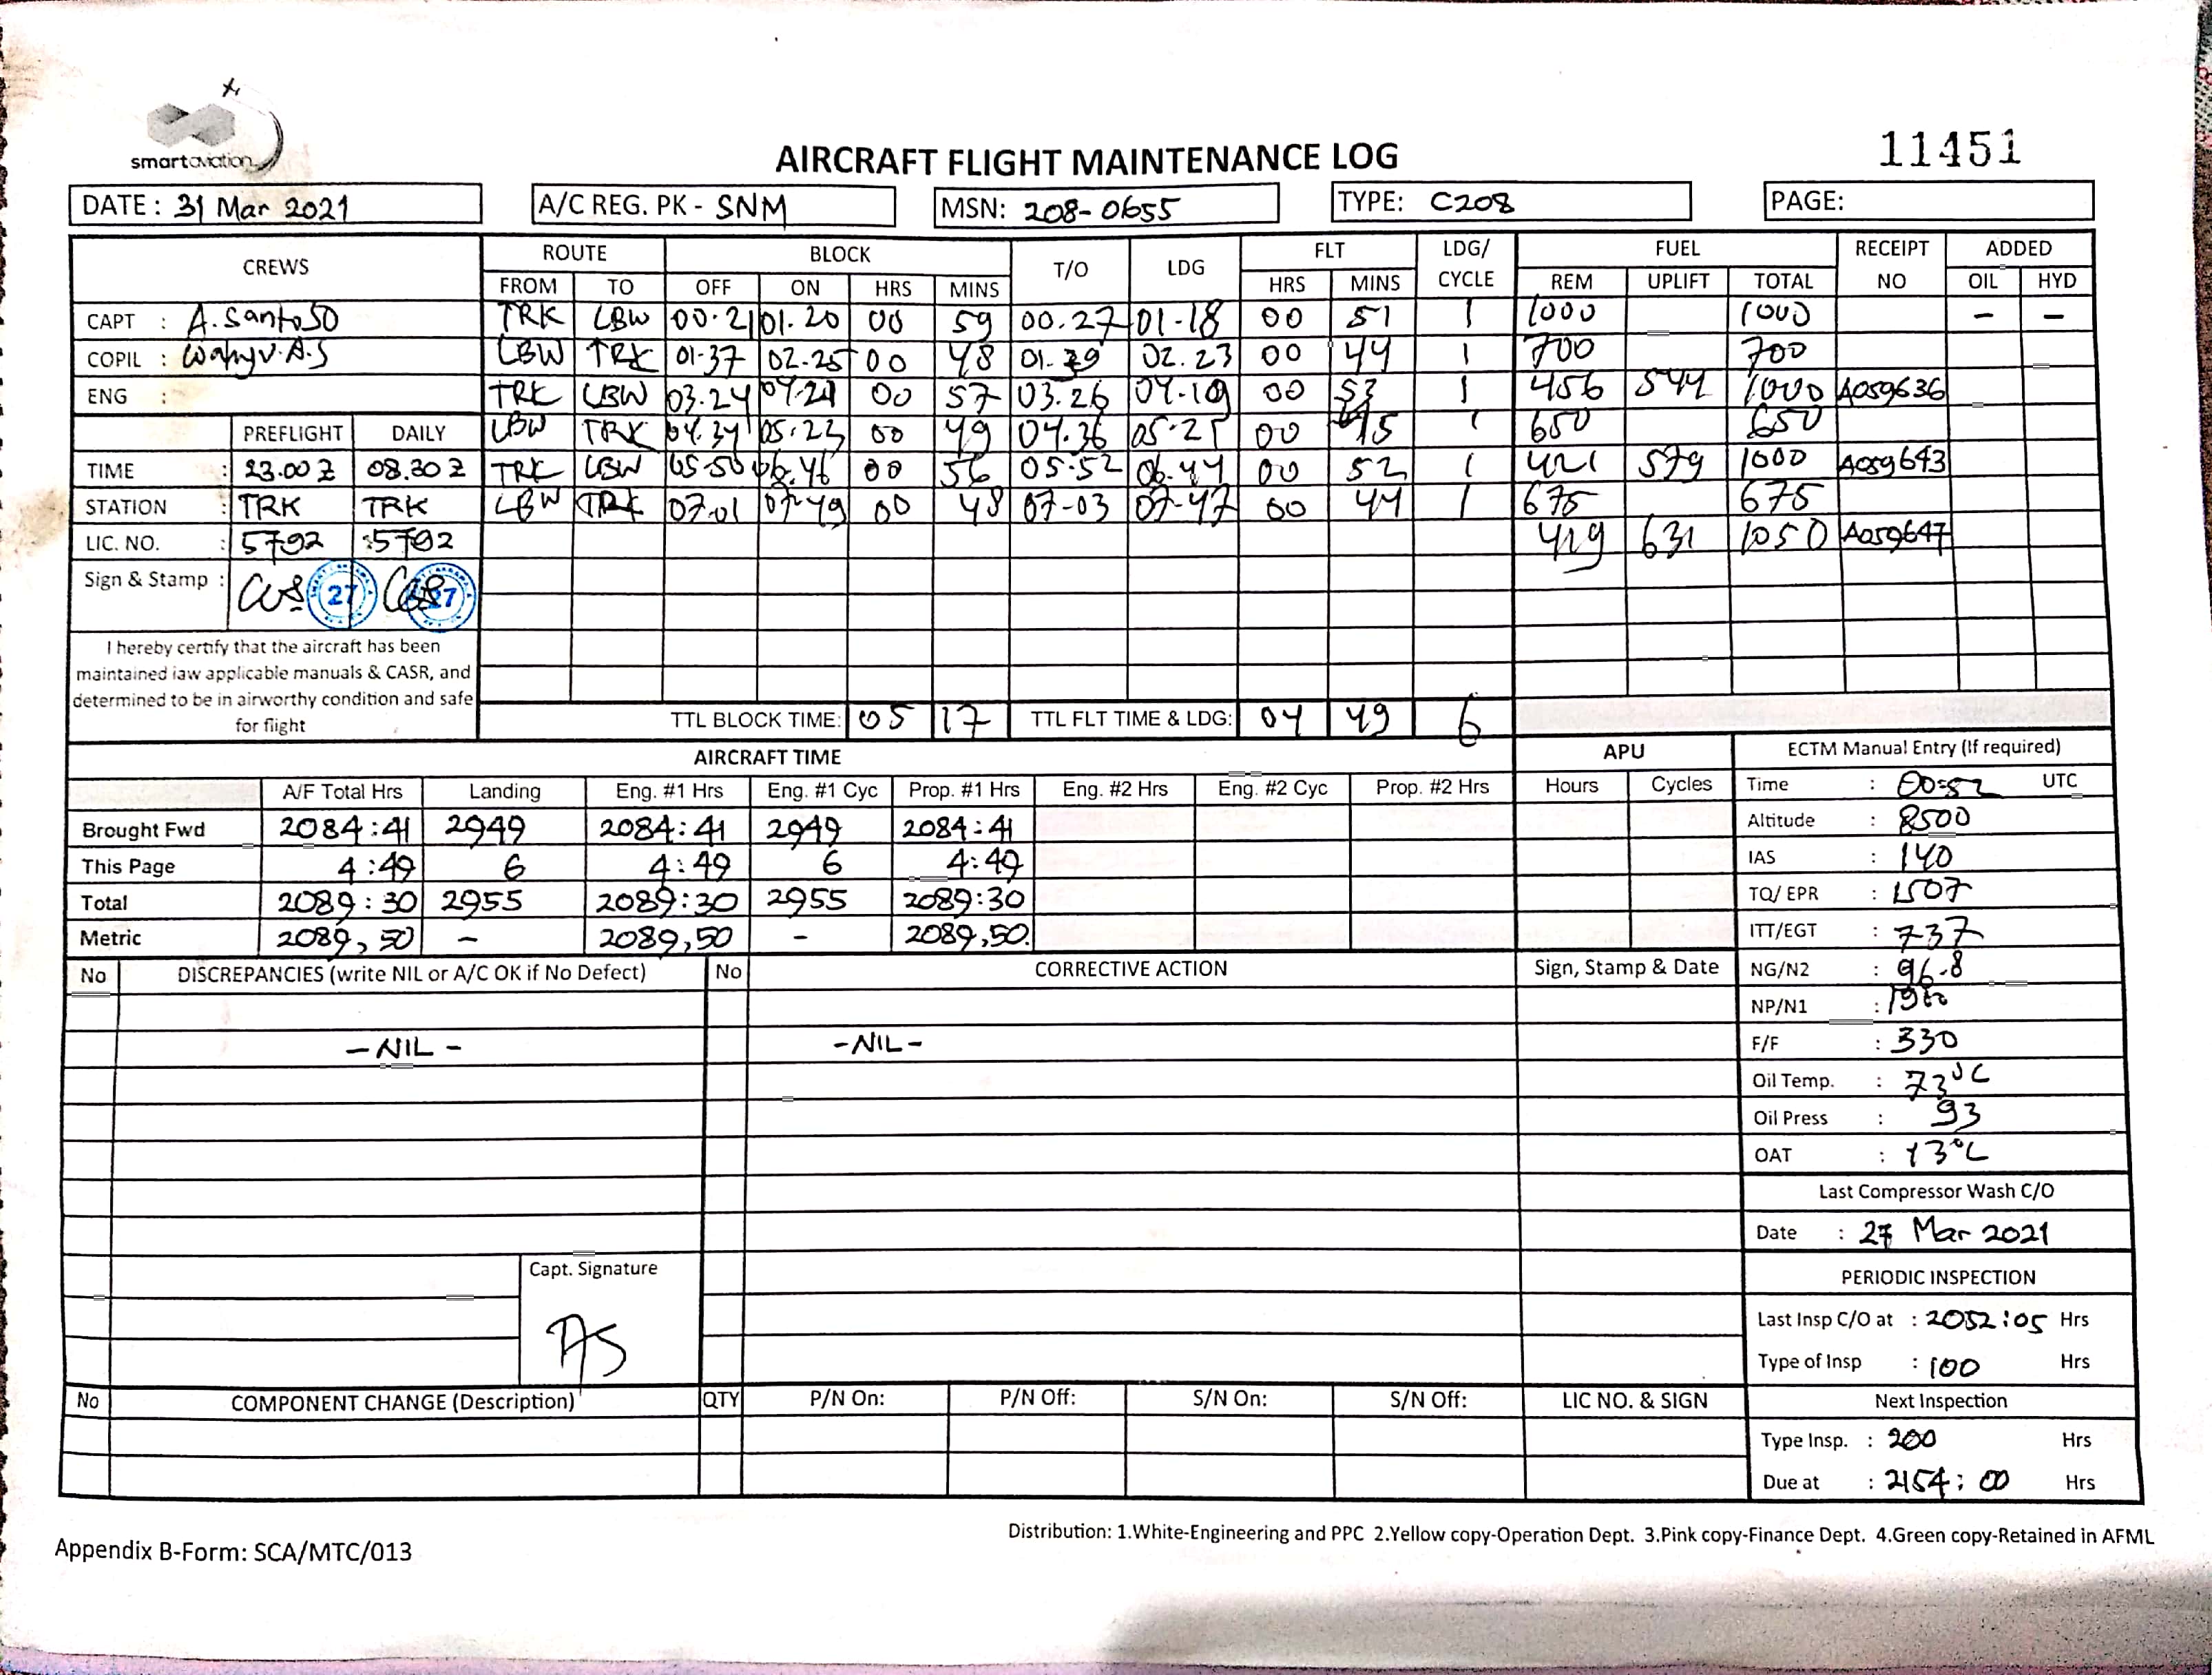 smartaviation
AIRCRAFT FLIGHT MAINTENANCE LOG
11451
DATE: 31 Mar 2021 A/C REG. PK - SNM MSN: 208-0655 TYPE: C208 PAGE:
CREWS ROUTE BLOCK T/O LDG FLT LDG/ CYCLE FUEL RECEIPT NO ADDED
FROM TO OFF ON HRS MINS HRS MINS REM UPLIFT TOTAL OIL HYD
CAPT : A. Santoso TRK LBW 00.21 01.20 00 59 00.27 01-18 00 51 1 1000 1000 - -
COPIL : Wahyu.A.S LBW TRK 01-37 02-25 00 48 01.39 02.23 00 44 1 700 700
ENG : TRK LBW 03.24 04.21 00 57 03.26 04.19 00 53 1 456 544 1000 A059636
LBW TRK 04.34 05.23 00 49 04.36 05.21 00 45 1 650 650
PREFLIGHT DAILY
TIME : 23.00 Z 08.30 Z TRK LBW 05-50 06.46 00 56 05.52 06.44 00 52 1 421 579 1000 A059643
STATION : TRK TRK LBW TRK 07.01 07-49 00 48 07-03 07-47 00 44 1 675 675
LIC. NO. : 5792 5792 419 631 1050 A059647
Sign & Stamp : 27 27
I hereby certify that the aircraft has been
maintained iaw applicable manuals & CASR, and
determined to be in airworthy condition and safe
for flight
TTL BLOCK TIME: 05 17 TTL FLT TIME & LDG: 04 49 6
AIRCRAFT TIME APU ECTM Manual Entry (If required)
A/F Total Hrs Landing Eng. #1 Hrs Eng. #1 Cyc Prop. #1 Hrs Eng. #2 Hrs Eng. #2 Cyc Prop. #2 Hrs Hours Cycles Time : 00:52 UTC
Brought Fwd 2084:41 2949 2084:41 2949 2084:41 Altitude : 8500
This Page 4:49 6 4:49 6 4:49 IAS : 140
Total 2089:30 2955 2089:30 2955 2089:30 TQ/ EPR : 1507
Metric 2089,50 - 2089,50 - 2089,50. ITT/EGT : 737
No DISCREPANCIES (write NIL or A/C OK if No Defect) No CORRECTIVE ACTION Sign, Stamp & Date NG/N2 : 96.8
NP/N1 :
- NIL - - NIL - F/F : 330
Oil Temp. : 73°C
Oil Press : 93
OAT : 13°C
Last Compressor Wash C/O
Date : 27 Mar 2021
Capt. Signature
AS
PERIODIC INSPECTION
Last Insp C/O at : 2052:05 Hrs
Type of Insp : 100 Hrs
No COMPONENT CHANGE (Description) QTY P/N On: P/N Off: S/N On: S/N Off: LIC NO. & SIGN Next Inspection
Type Insp. : 200 Hrs
Due at : 2154:00 Hrs
Distribution: 1.White-Engineering and PPC 2.Yellow copy-Operation Dept. 3.Pink copy-Finance Dept. 4.Green copy-Retained in AFML
Appendix B-Form: SCA/MTC/013